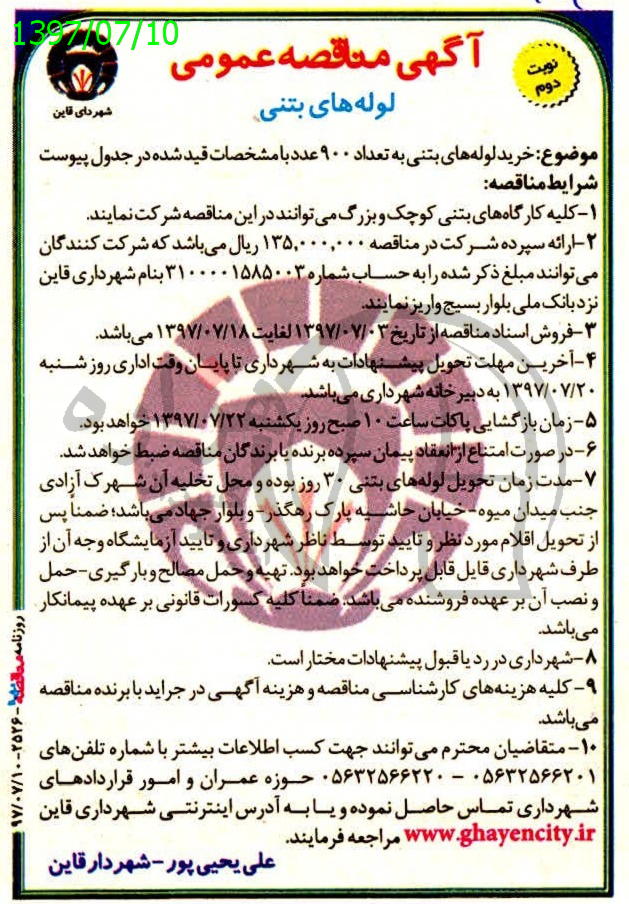 1397/07/10
آگهی مناقصه عمومی
نوبت
دوم
شهرداری قاین
لوله‌های بتنی
موضوع: خرید لوله‌های بتنی به تعداد ۹۰۰ عدد با مشخصات قید شده در جدول پیوست
شرایط مناقصه:
۱-کلیه کارگاه‌های بتنی کوچک و بزرگ می‌توانند در این مناقصه شرکت نمایند.
۲-ارائه سپرده شرکت در مناقصه ۱۳۵,۰۰۰,۰۰۰ ریال می‌باشد که شرکت کنندگان
می‌توانند مبلغ ذکر شده را به حساب شماره ۳۱۰۰۰۰۱۵۸۵۰۰۳ بنام شهرداری قاین
نزد بانک ملی بلوار بسیج واریز نمایند.
۳-فروش اسناد مناقصه از تاریخ ۱۳۹۷/۰۷/۰۳ لغایت ۱۳۹۷/۰۷/۱۸ می‌باشد.
۴-آخرین مهلت تحویل پیشنهادات به شهرداری تا پایان وقت اداری روز شنبه
۱۳۹۷/۰۷/۲۰ به دبیرخانه شهرداری می‌باشد.
۵-زمان بازگشایی پاکات ساعت ۱۰ صبح روز یکشنبه ۱۳۹۷/۰۷/۲۲ خواهد بود.
۶-در صورت امتناع از انعقاد پیمان سپرده برنده یا برندگان مناقصه ضبط خواهد شد.
۷-مدت زمان تحویل لوله‌های بتنی ۳۰ روز بوده و محل تخلیه آن شهرک آزادی
جنب میدان میوه-خیابان حاشیه پارک رهگذر-و بلوار جهاد می‌باشد؛ ضمناً پس
از تحویل اقلام مورد نظر و تایید توسط ناظر شهرداری و تایید آزمایشگاه وجه آن از
طرف شهرداری قایل قابل پرداخت خواهد بود. تهیه و حمل مصالح و بارگیری-حمل
و نصب آن بر عهده فروشنده می‌باشد. ضمناً کلیه کسورات قانونی بر عهده پیمانکار
می‌باشد.
۸-شهرداری در رد یا قبول پیشنهادات مختار است.
۹-کلیه هزینه‌های کارشناسی مناقصه و هزینه آگهی در جراید با برنده مناقصه
می‌باشد.
۱۰-متقاضیان محترم می‌توانند جهت کسب اطلاعات بیشتر با شماره تلفن‌های
۰۵۶۳۲۵۶۶۲۰۱ - ۰۵۶۳۲۵۶۶۲۲۰ حوزه عمران و امور قراردادهای
شهرداری تماس حاصل نموده و یا به آدرس اینترنتی شهرداری قاین
www.ghayencity.ir مراجعه فرمایند.
علی یحیی پور-شهردار قاین
روزنامه مناقصه -۲۵۲۶-۹۷/۰۷/۱۰